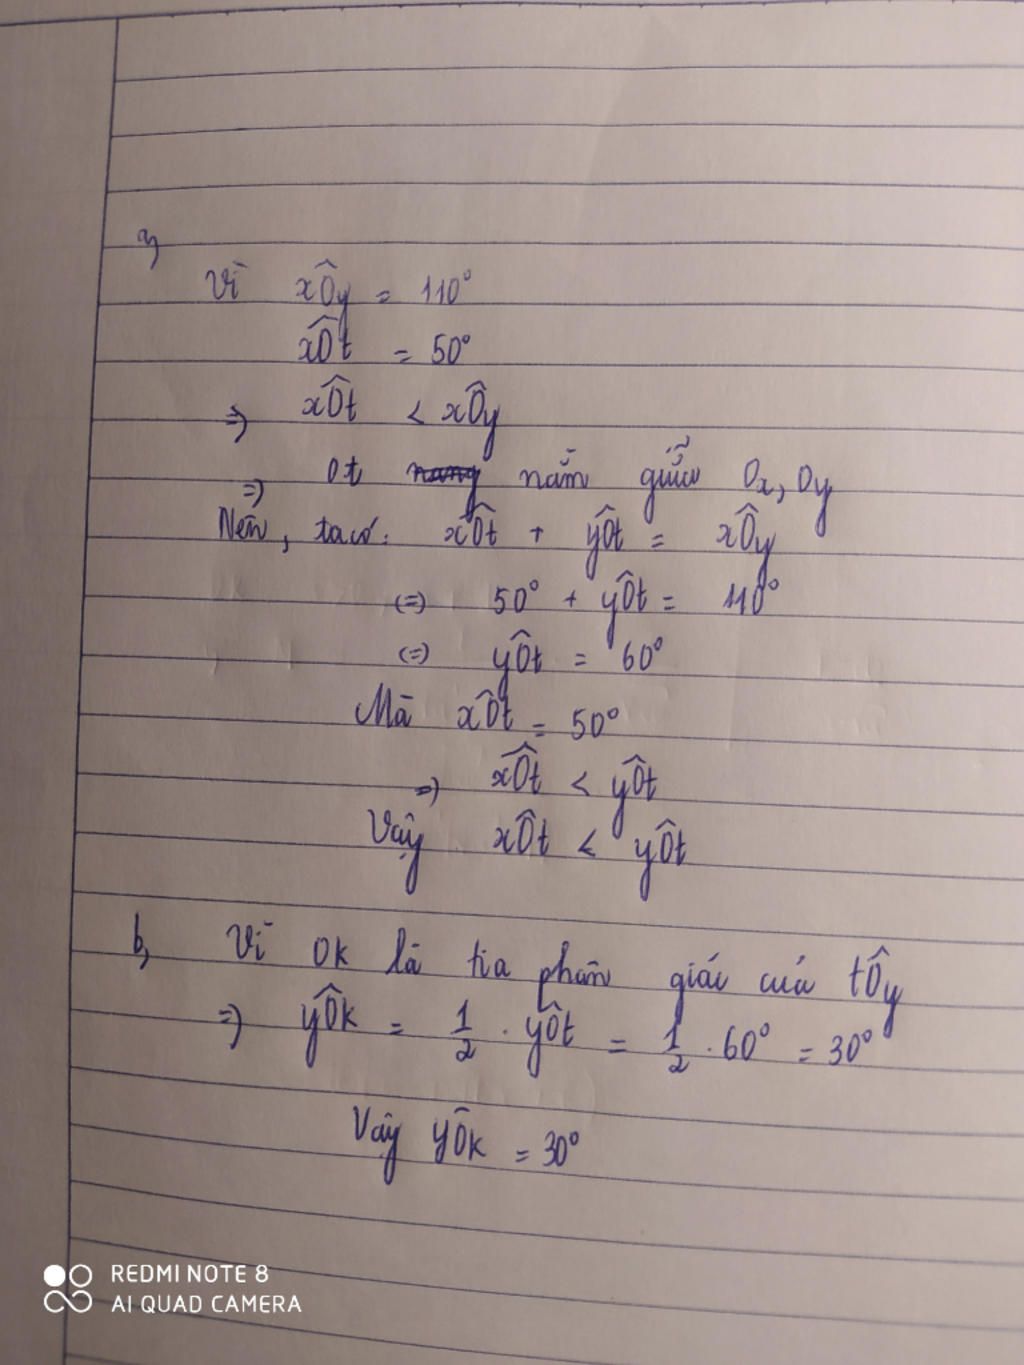 a,
Vì xÔy = 110°
xÔt = 50°
=> xÔt < xÔy
=> Ot nằm giữa Ox, Oy
Nên, ta có: xÔt + yÔt = xÔy
(=) 50° + yÔt = 110°
(=) yÔt = 60°
Mà xÔt = 50°
=) xÔt < yÔt
Vậy xÔt < yÔt
b, Vì OK là tia phân giác của tÔy
=) yÔk = 1/2 . yÔt = 1/2 . 60° = 30°
Vậy yÔk = 30°
REDMI NOTE 8
AI QUAD CAMERA